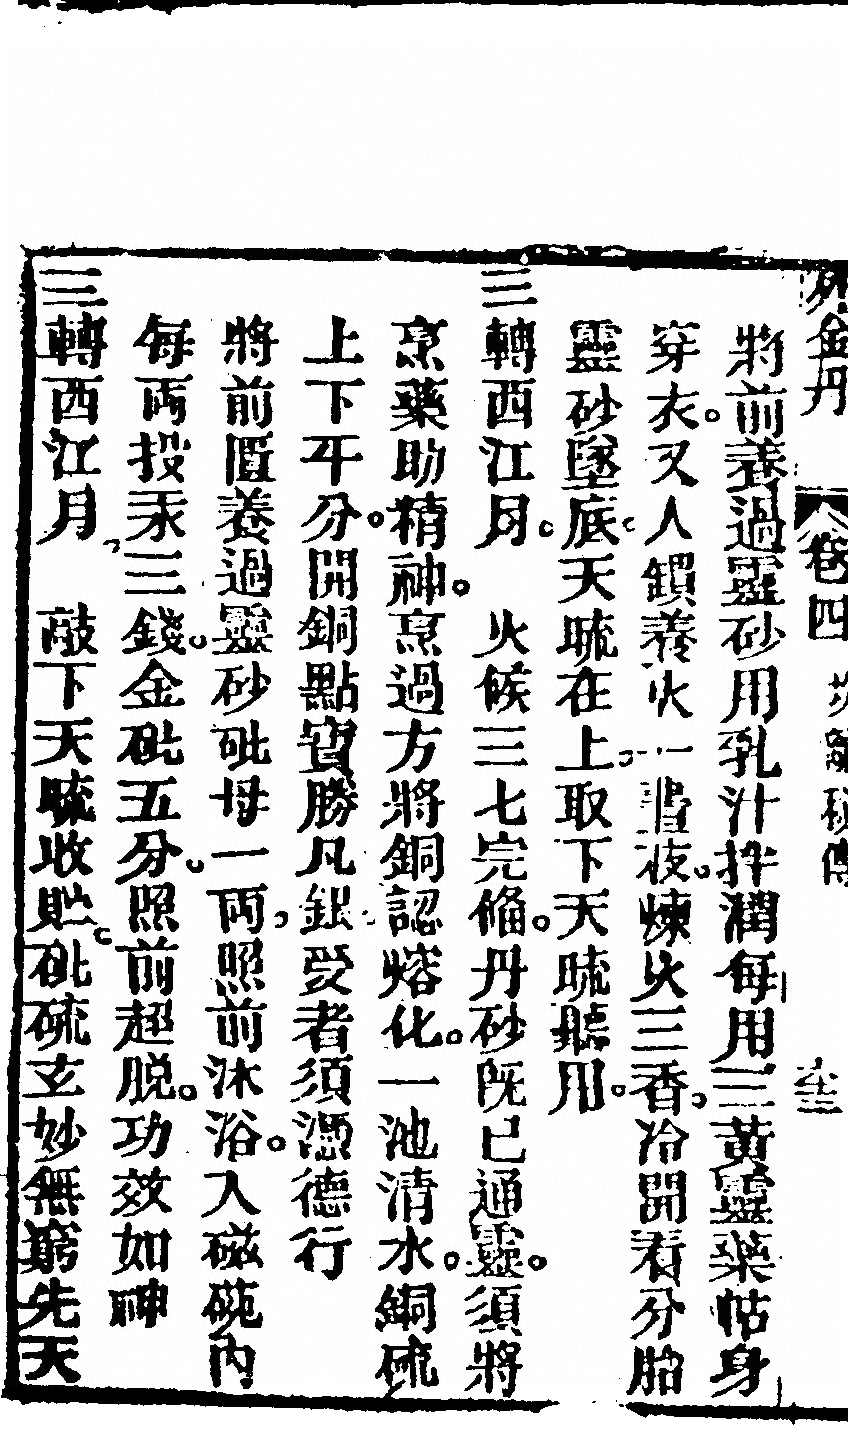 外金丹 卷四
將前養過靈砂用乳汁拌潤每用三黄靈藥帖身
穿衣。又人鎖養火一晝夜。煉火三香。冷開看分胎
靈砂墜底。天硫在上。取下天硫聽用。
三轉西江月。 火候三七完俻。丹砂既已通靈。須將
烹藥助精神。烹過方將銅認。熔化一池清水。銅硫
上下平分。開銅點寳勝凡銀。受者須憑德行
將前匱養過靈砂砒母一両。照前沐浴。入磁碗内
每両投汞三錢。金砒五分。照前超脱。功效如神
三轉西江月。 敲下天硫收貯。砒硫玄妙無窮先天